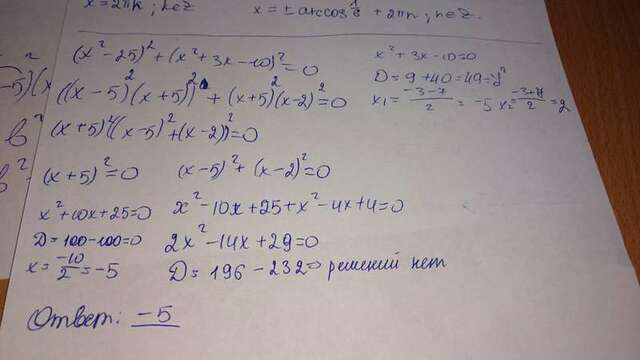 x = 2πk; k∈Z
x = ± arccos + 2πn; n∈Z.
(x² − 25)² + (x² + 3x − 10)² = 0
x² + 3x − 10 = 0
((x − 5)(x + 5))² + (x + 5)²(x − 2)² = 0
D = 9 + 40 = 49 = 7²
x₁ = (−3 − 7)/2 = −5 x₂ = (−3 + 7)/2 = 2
(x + 5)²((x − 5)² + (x − 2)²) = 0
(x + 5)² = 0
(x − 5)² + (x − 2)² = 0
x² + 10x + 25 = 0
x² − 10x + 25 + x² − 4x + 4 = 0
D = 100 − 100 = 0
2x² − 14x + 29 = 0
x = −10/2 = −5
D = 196 − 232 ⇒ решений нет
Ответ: −5